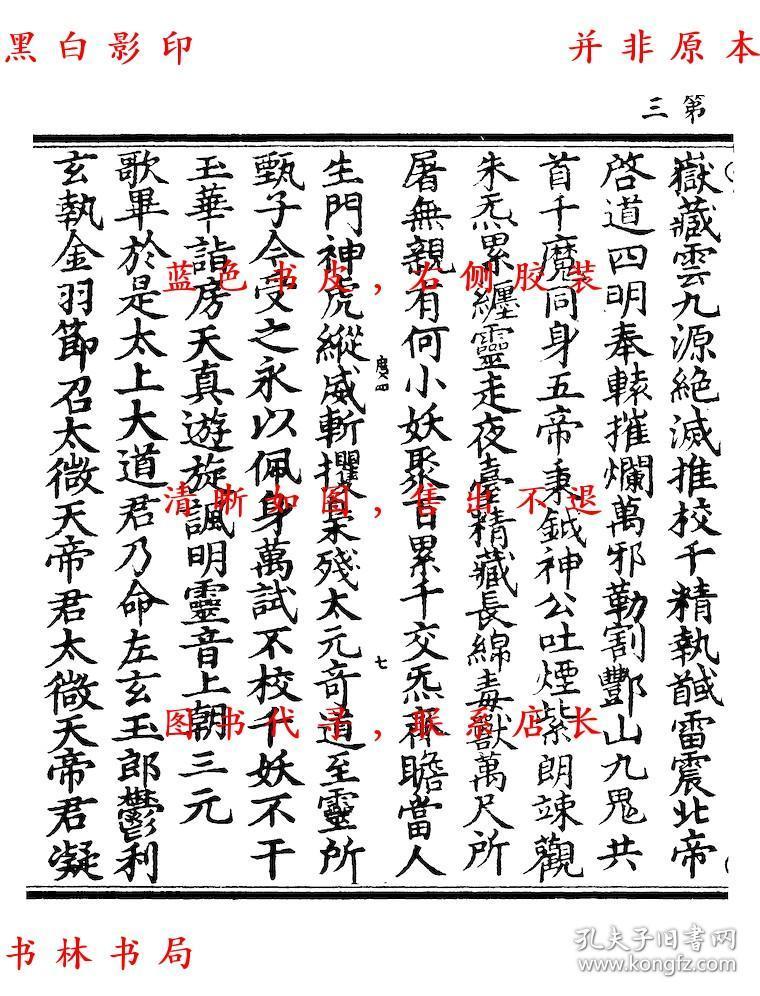 黑白影印
并非原本
第三
嶽藏雲九源絶滅推校千精執馘雷震北帝
啓道四明奉轅摧爛萬邪勒割酆山九鬼共
首千魔同身五帝秉鉞神公吐煙紫朗竦觀
朱炁累纏靈走夜臺精藏長綿毒獸萬尺所
屠無親有何小妖聚百累千交炁所瞻當人
生門神虎縱威斬攫殘太元奇道至靈所
度人四
七
甄子今受之永以佩身萬試不校千妖不干
玉華詣房天真遊旋諷明靈音上朝三元
歌畢於是太上大道君乃命左玄玉郎鬱利
玄執金羽節召太微天帝君太微天帝君凝
蓝色书皮，右侧胶装
清晰如图，售出不退
图书代寻，联系店长
书林书局
孔夫子旧书网
www.kongfz.com